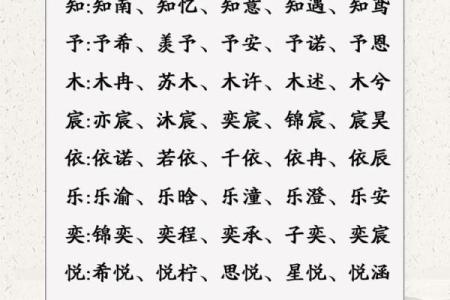 知:知南、知忆、知意、知遇、知鸢
予:予希、羡予、予安、予诺、予恩
木:木冉、苏木、木许、木述、木兮
宸:亦宸、沐宸、奕宸、锦宸、宸昊
依:依诺、若依、千依、依冉、依辰
乐:乐渝、乐晗、乐潼、乐澄、乐安
奕:锦奕、奕程、奕承、子奕、奕宸
悦:希悦、悦柠、思悦、星悦、悦涵